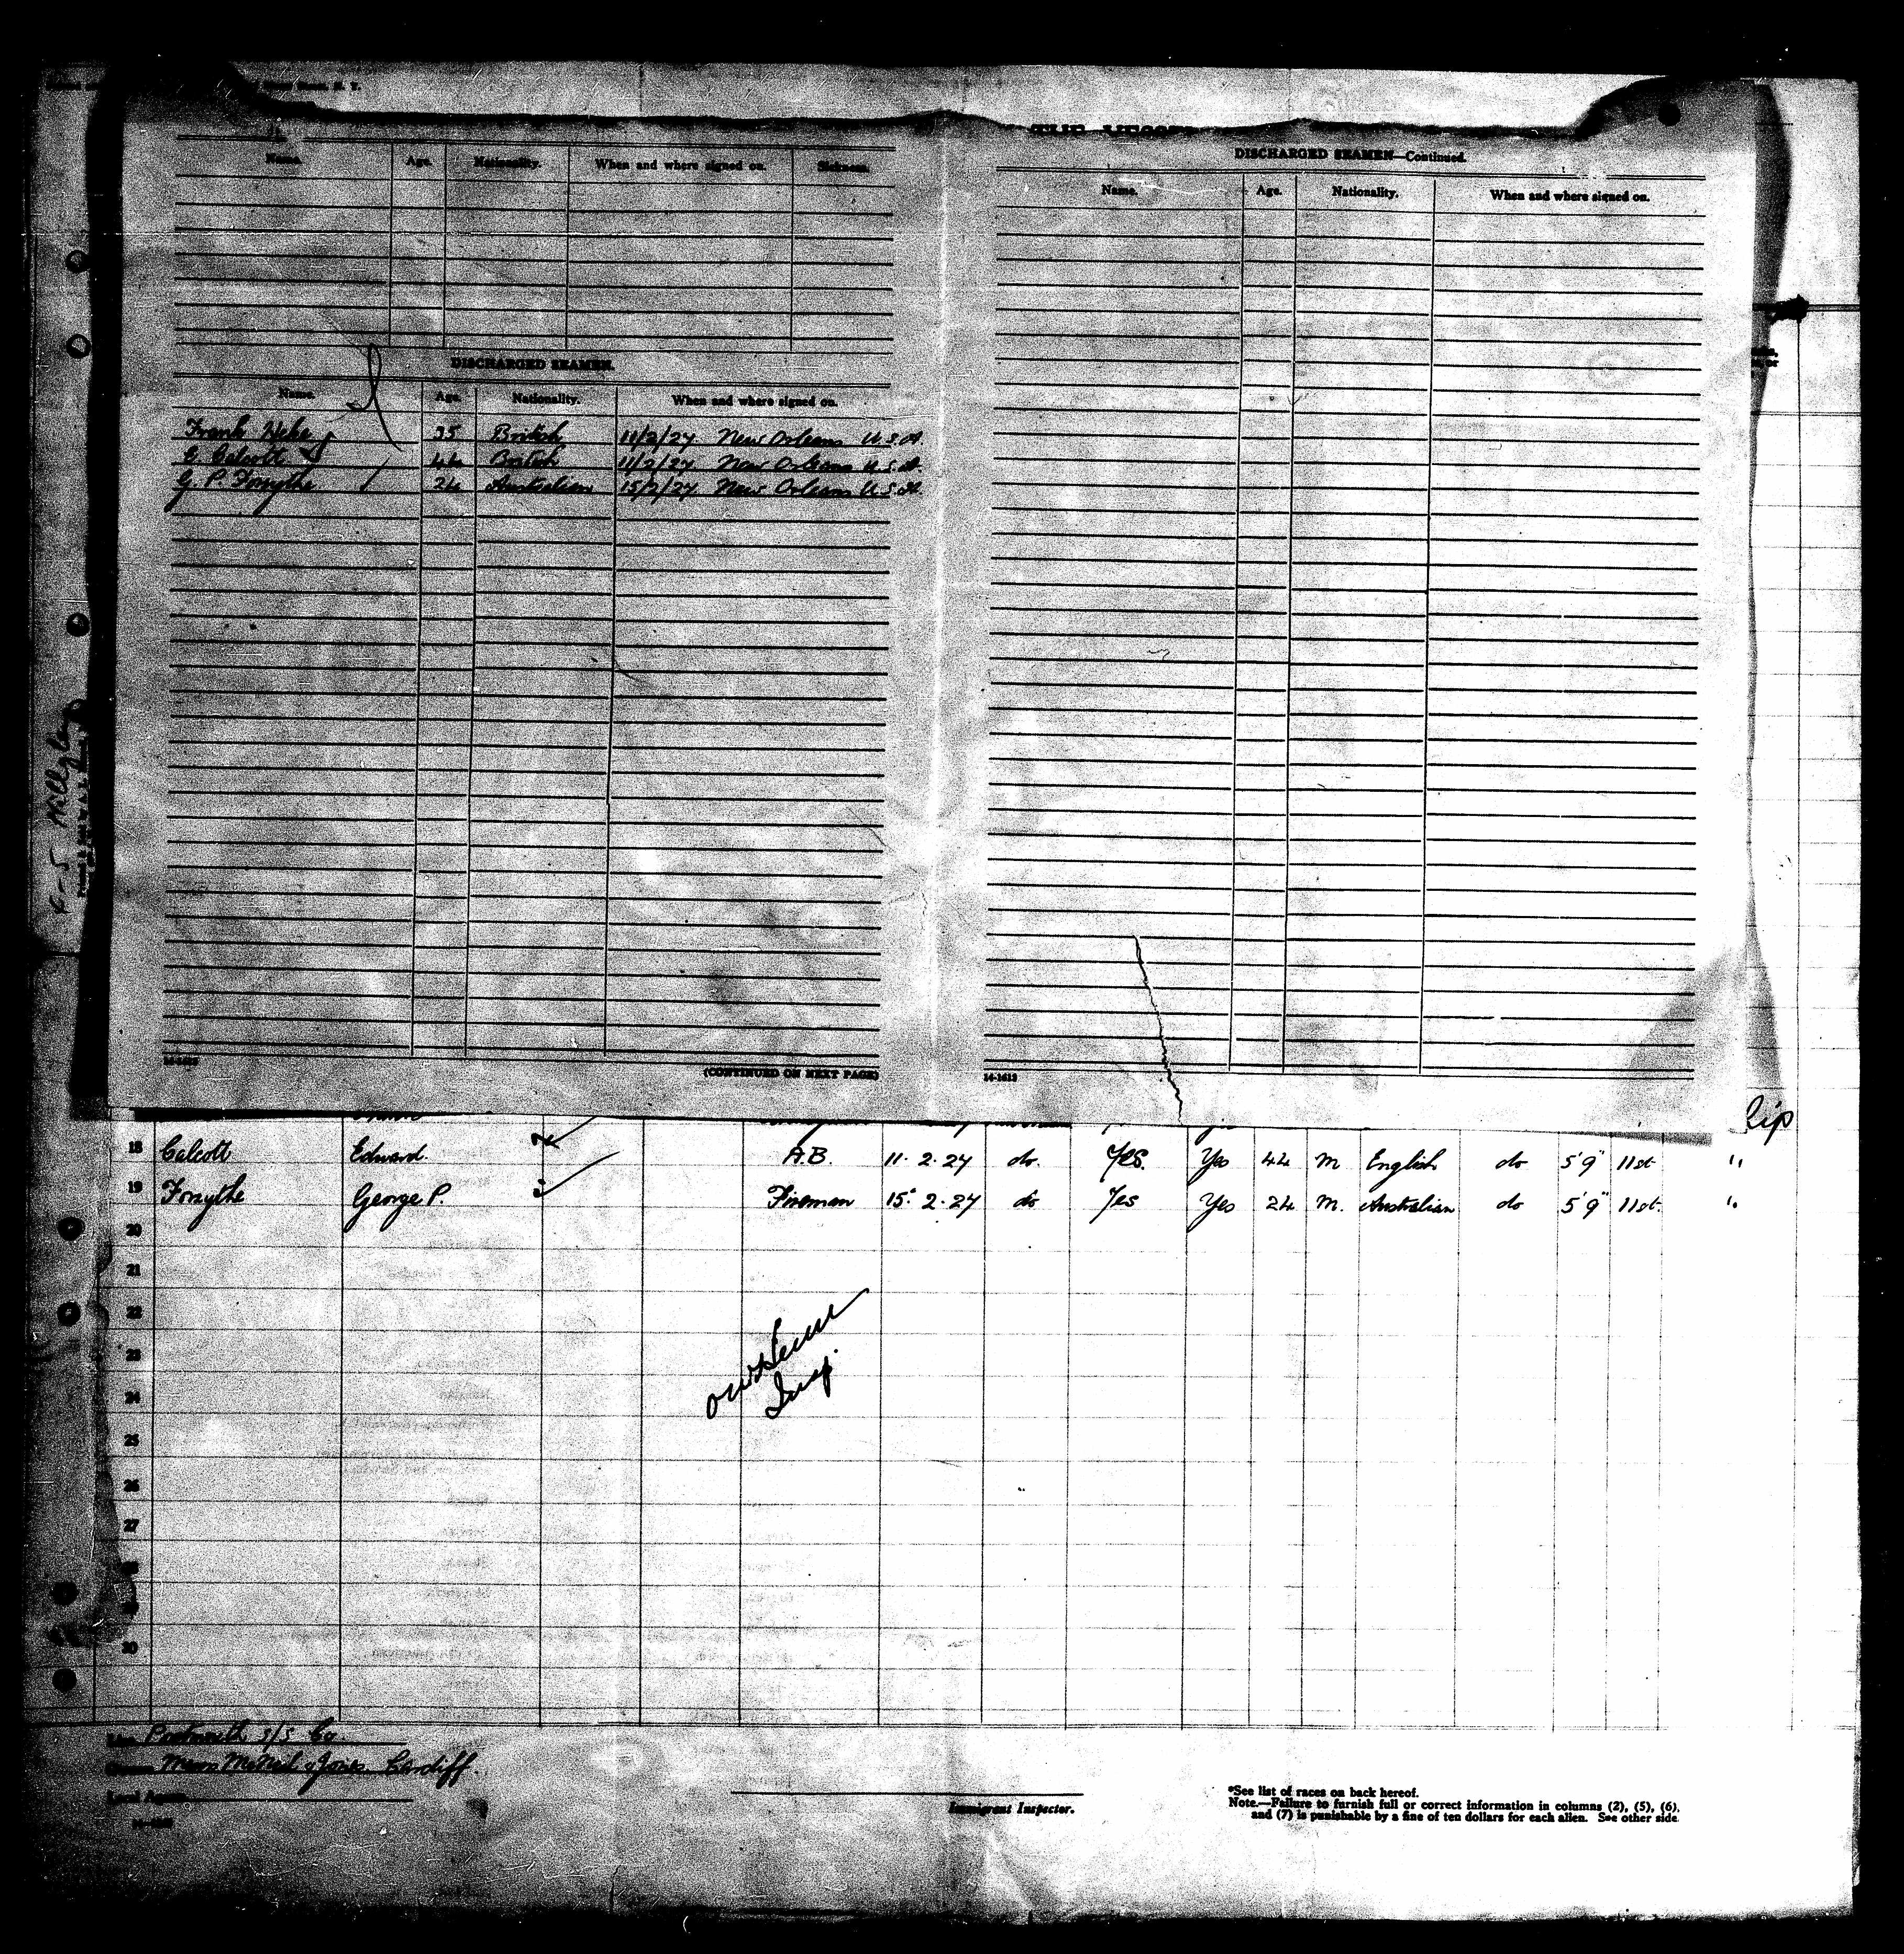 Name. Age. Nationality. When and where signed on. Sickness.
DISCHARGED SEAMEN.
Name. Age. Nationality. When and where signed on.
Frank 35 British 11/2/27 New Orleans U.S.A.
E. Calcott 44 British 11/2/27 New Orleans U.S.A.
G. P. Forsythe 24 Australian 15/2/27 New Orleans U.S.A.
(CONTINUED ON NEXT PAGE)
DISCHARGED SEAMEN—Continued.
Name. Age. Nationality. When and where signed on.
14-1613
lip
18 Calcott Edward A.B. 11.2.27 do. Yes. Yes 44 M English do 5'9" 11st "
19 Forsythe George P. Fireman 15.2.27 do Yes Yes 24 M. Australian do 5'9" 11st. "
20
21
22
23
24
25
26
27
30
Insp.
S/S Co.
Jones Cardiff.
Local Agents
Immigrant Inspector.
*See list of races on back hereof.
Note.—Failure to furnish full or correct information in columns (2), (5), (6),
and (7) is punishable by a fine of ten dollars for each alien. See other side.